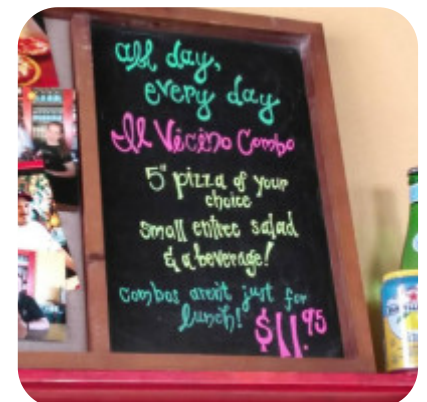 all day,
every day
Il Vicino Combo
5" pizza of your
choice
small entree salad
& a beverage!
Combos aren't just for
lunch!
$11.95